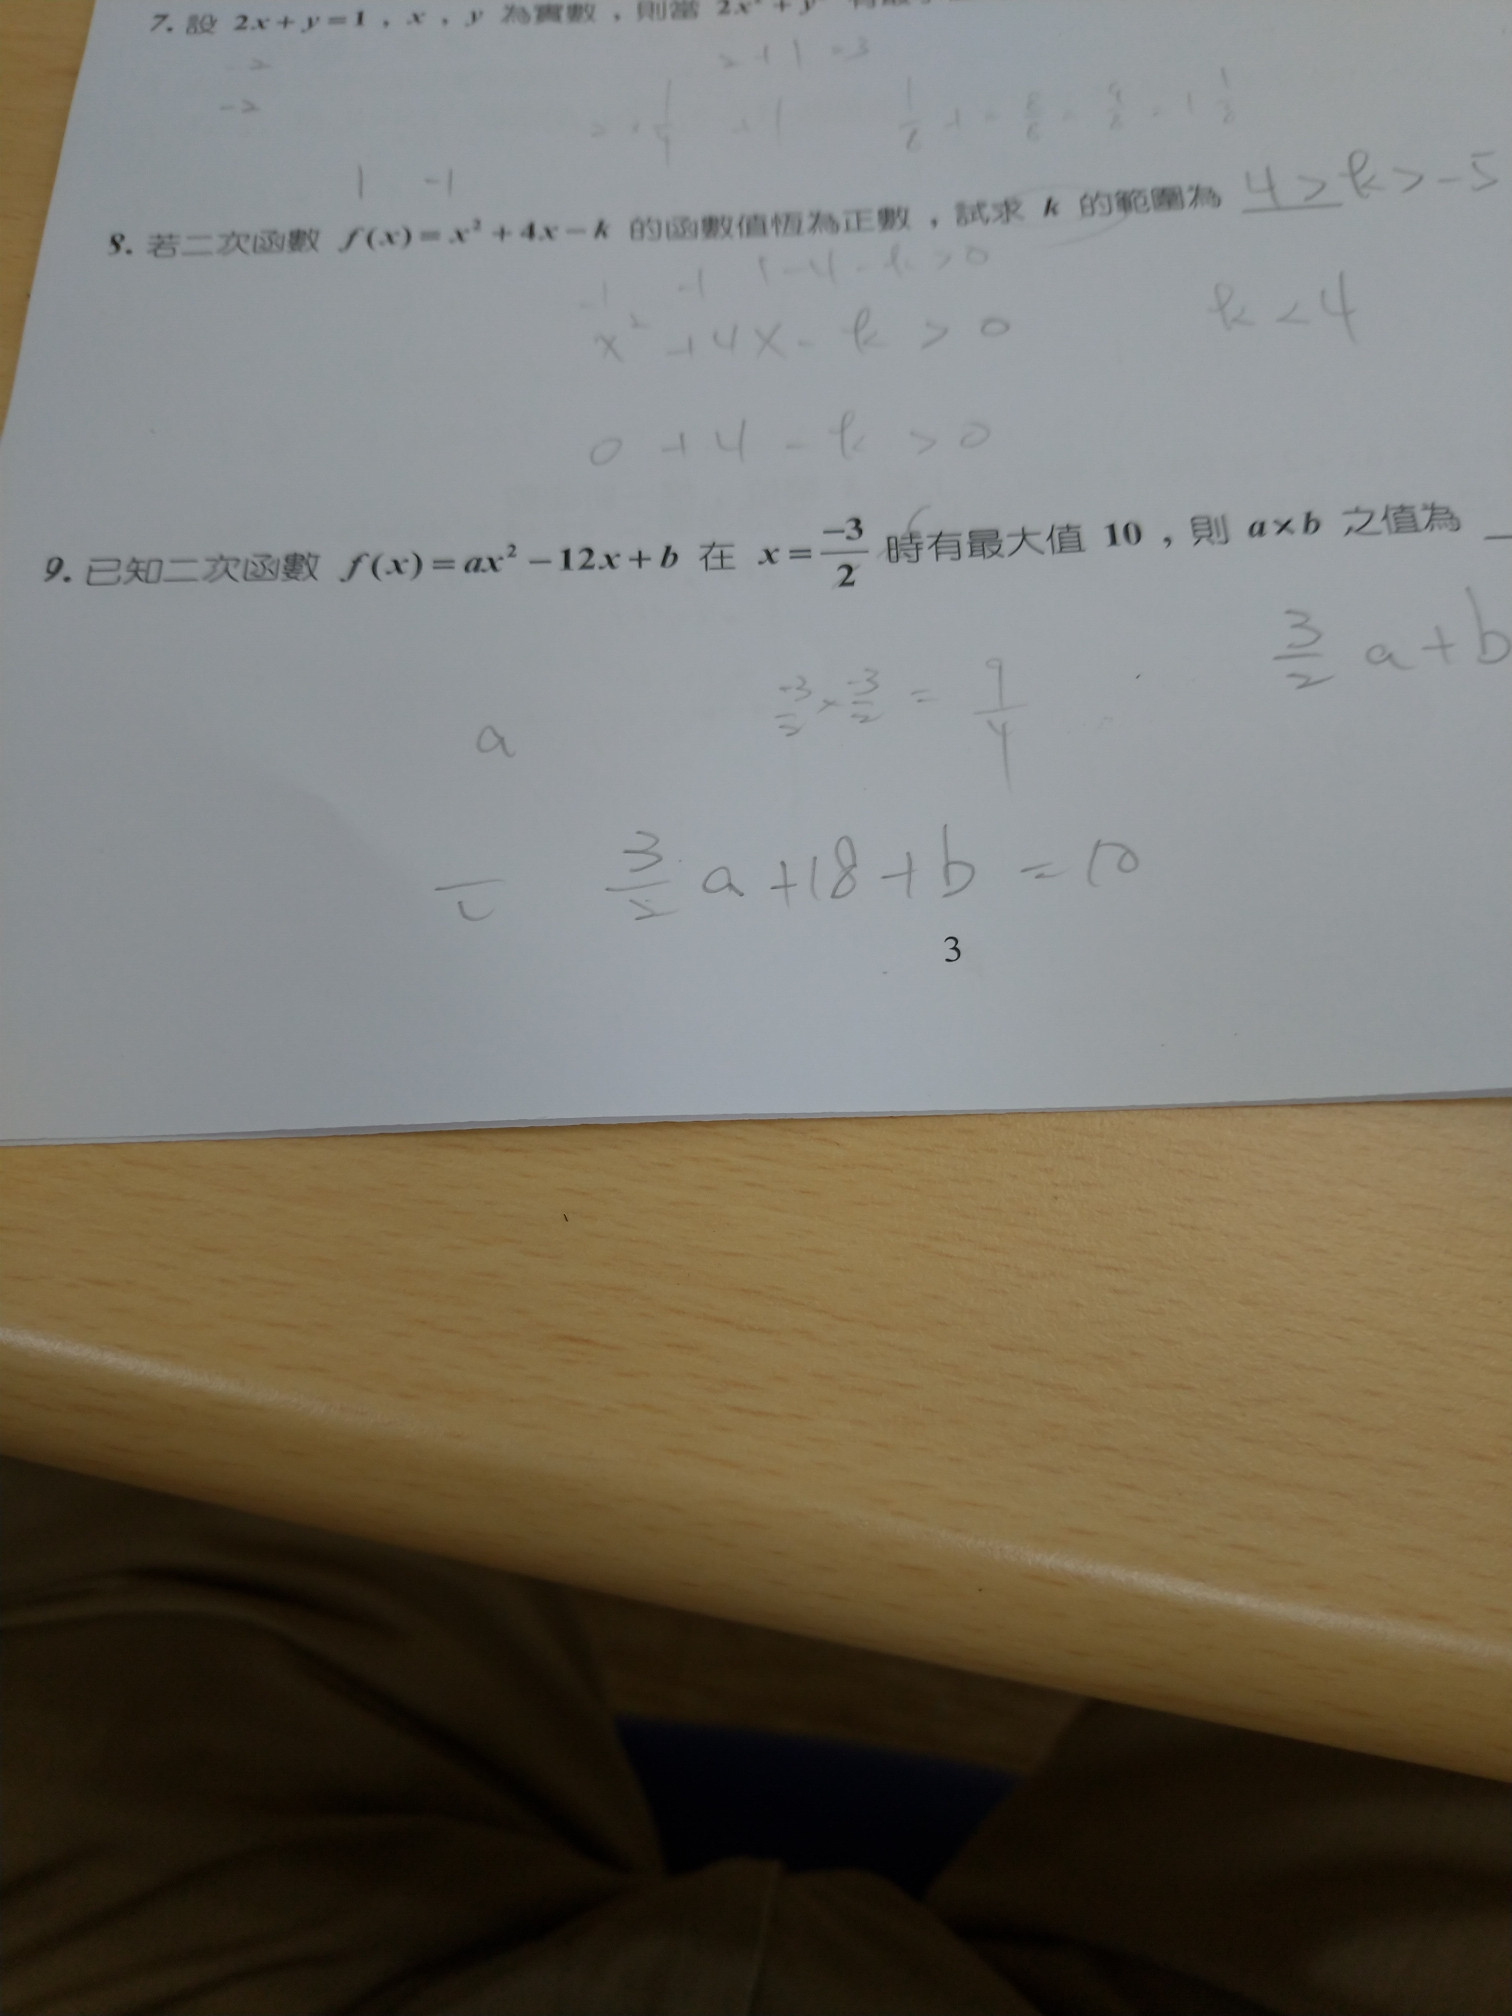 7. 設 2x + y = 1 , x , y 為實數 , 則當 2x² + y
-2
2 + 1 = 3
-2
1 -1
8. 若二次函數 f(x) = x² + 4x - k 的函數值恆為正數 , 試求 k 的範圍為 4 > k > -5
-1 -1 1 - 4 - k > 0
x² + 4x - k > 0
k < 4
0 + 4 - k > 0
9. 已知二次函數 f(x) = ax² - 12x + b 在 x = -3/2 時有最大值 10 , 則 a×b 之值為
3/2 a + b
-3/2 × -3/2 = 9/4
a
3/2 a + 18 + b = 10
3